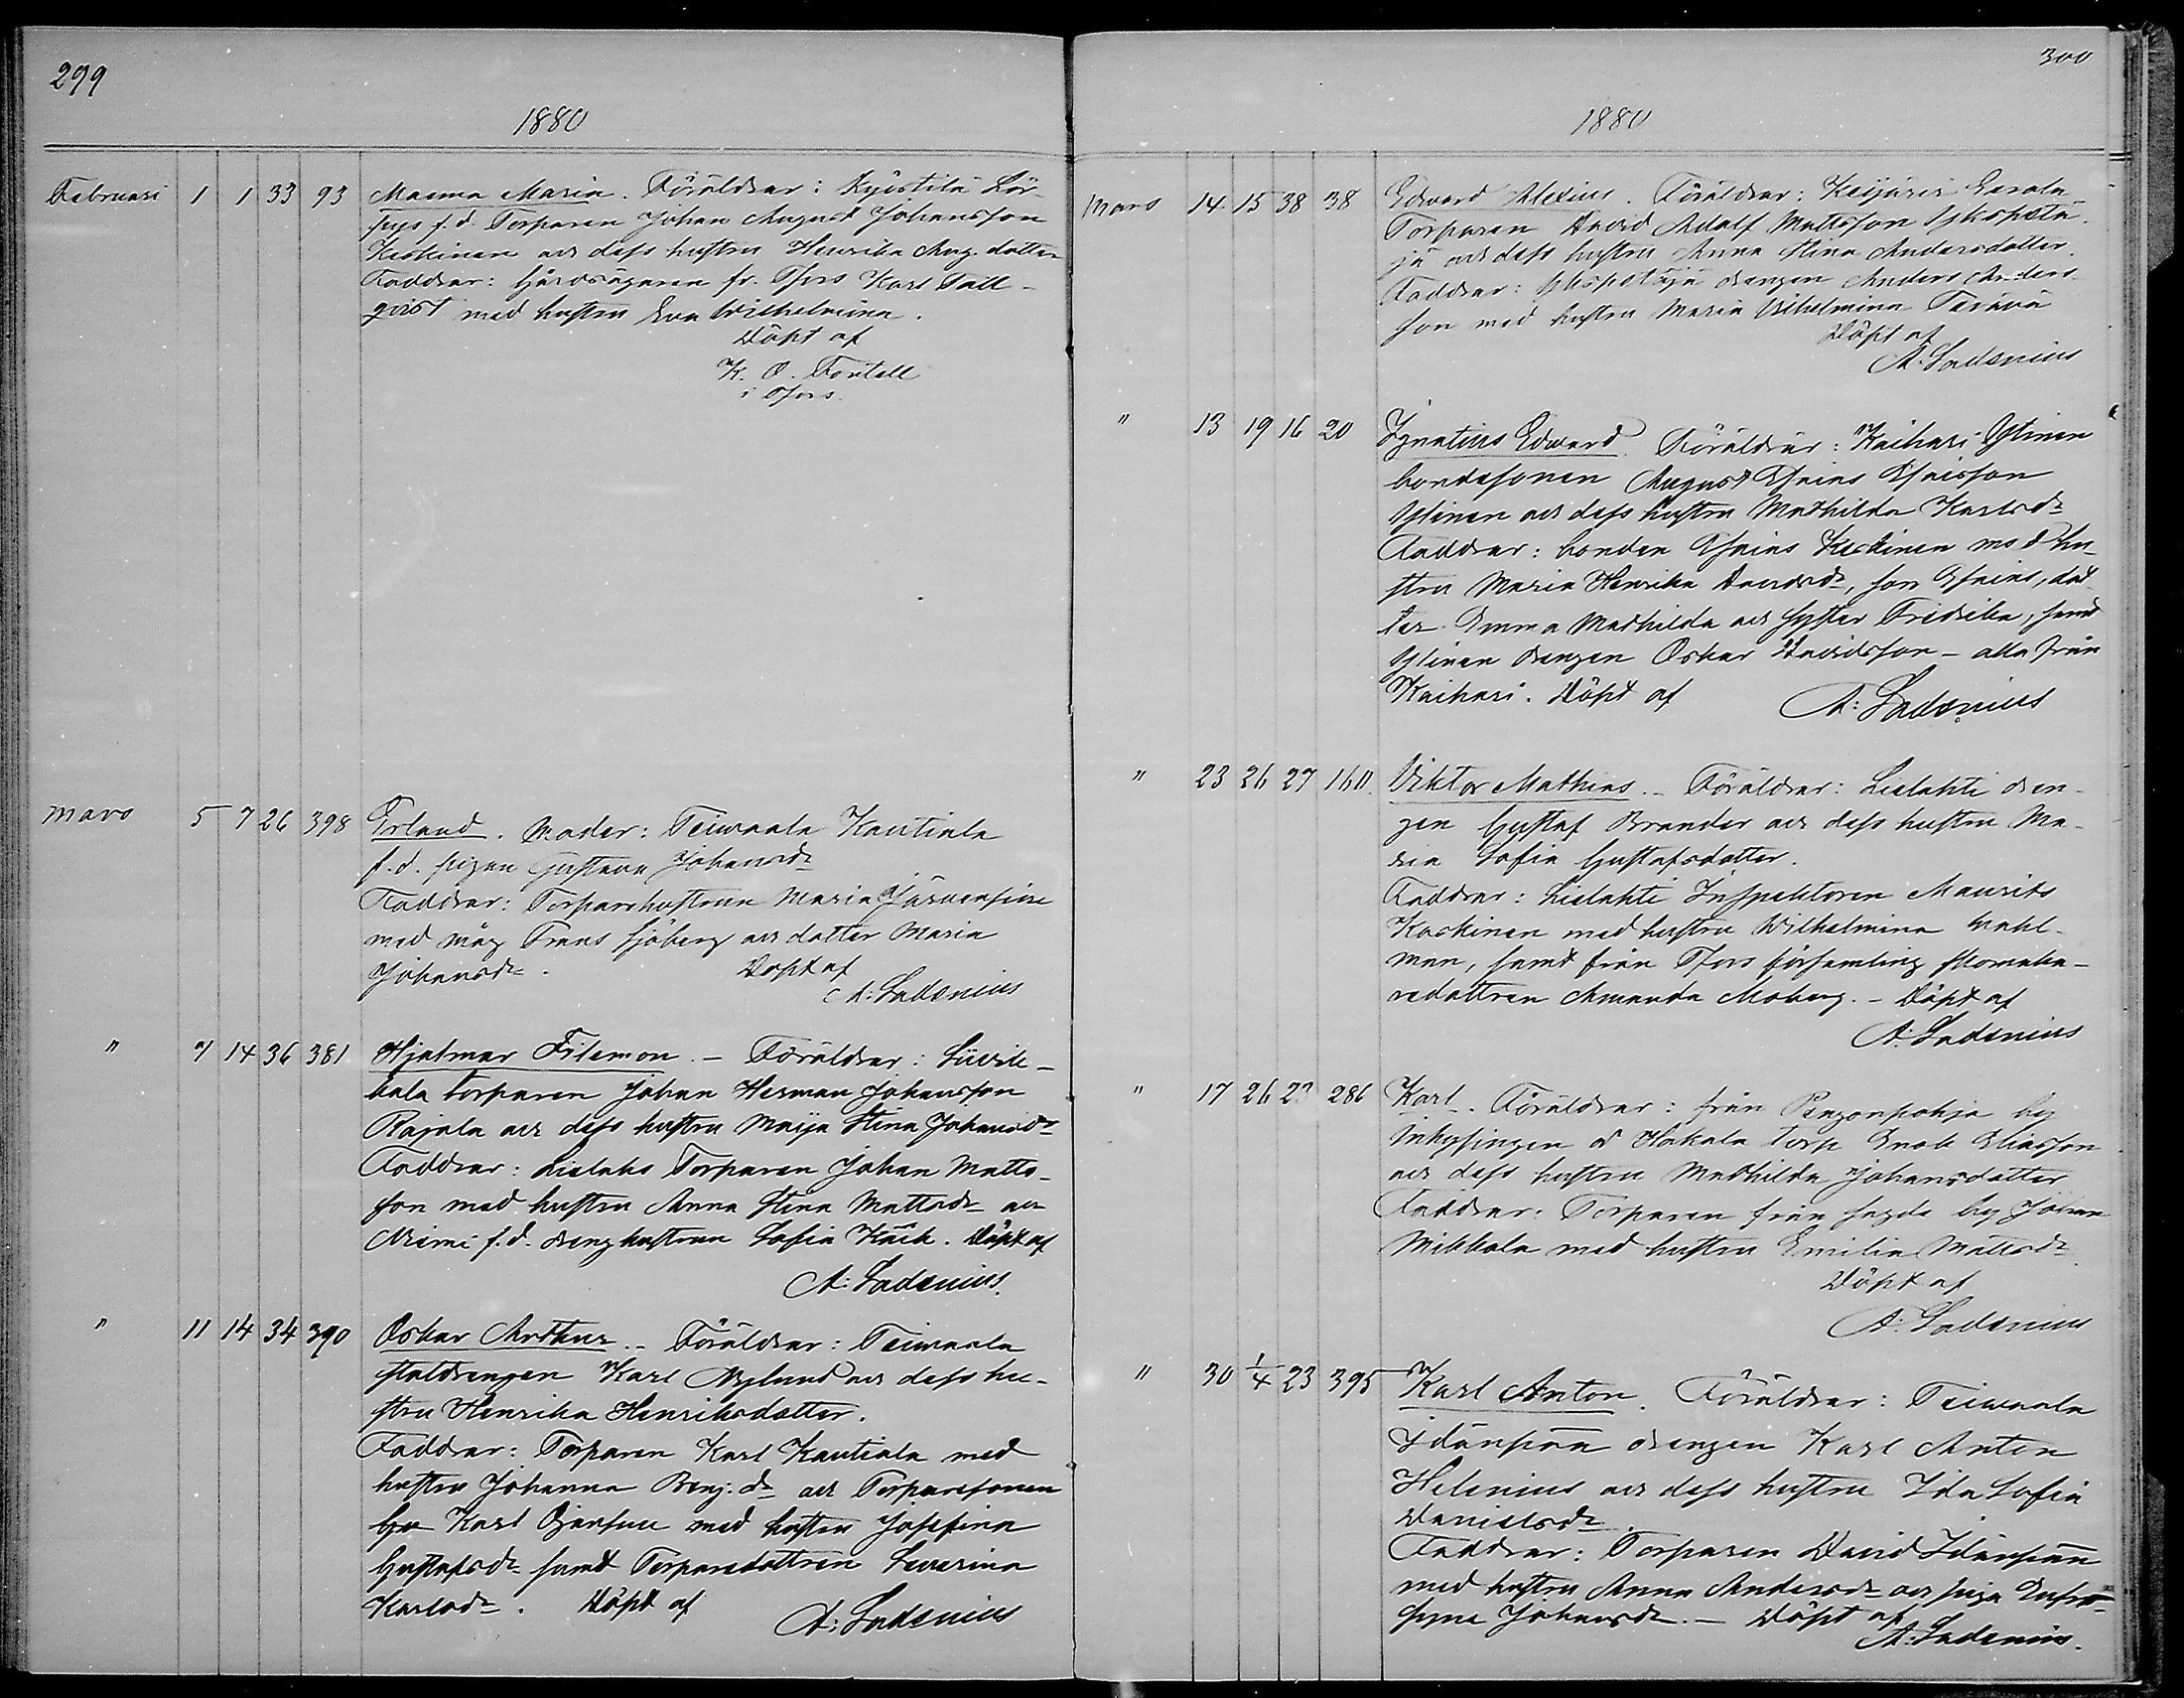 299
1880
Februari 1 1 33 93 Manna Maria. Föräldrar: Kyöstilä Lör-
fuys f.d. Torparen Johan August Johansson
Keskinen och dess hustru Henrika Aug. dotter
Faddrar: Gårdsägaren fr. Tfors Karl Tall-
qvist med hustru Eva Wilhelmina.
Döpt af
K. O. Fontell
i Tfors.
Mars 5 7 26 398 Erland. Moder: Teiwaala Kautiala
f.d. pigan Gustava Johansdr
Faddrar: Torparehustrun Maria Järvensivu
med måg Frans Sjöberg och dotter Maria
Johansdr. Döpt af
A: Ladenius
" 7 14 36 381 Hjalmar Filemon. - Föräldrar: Siivik-
kala torparen Johan Herman Johansson
Rajala och dess hustru Maija Stina Johansdr
Faddrar: Lielaks Torparen Johan Matts-
son med hustru Anna Stina Mattsdr och
Niemi f.d. dränghustrun Sofia Käck. Döpt af
A: Ladenius.
" 11 14 34 390 Oskar Arthur. - Föräldrar: Teiwaala
stalldrängen Karl Nylund och dess hu-
stru Henrika Henriksdotter.
Faddrar: Torparen Karl Kautiala med
hustru Johanna Benj. dr och Torparesonen
Karl Ojansuu med hustru Josefina
Gustafsdr samt Torparedottren Severina
Karlsdr. Döpt af A: Ladenius
300
1880
Mars 14 15 38 38 Edvard Alexius. Föräldrar: Keijäris Eerola
Torparen David Adolf Mattsson Yhspetä-
jä och dess hustru Anna Stina Andersdotter.
Faddrar: Yhspetäjä drängen Anders Anders-
son med hustru Maria Vilhelmina Terävä
Döpt af
A: Ladenius
" 13 19 16 20 Ignatius Edvard. Föräldrar: Kaihari Ylinen
bondesonen August Esaias Esaisson
Ylinen och dess hustru Mathilda Karlsdr
Faddrar: bonden Esaias Keskinen med hu-
stru Maria Henrika Davidsdr, son Esaias, dot-
ter Emma Mathilda och syster Fredrika, samt
Ylinen drängen Oskar Davidsson - alla från
Kaihari. Döpt af A: Ladenius
" 23 26 27 160 Viktor Mathias. - Föräldrar: Lielahti drän-
gen Gustaf Brander och dess hustru Ma-
ria Sofia Gustafsdotter.
Faddrar: Lielahti Inspektoren Maurits
Koskinen med hustru Wilhelmina Wahl-
man, samt från Tfors församling skomaka-
redottren Amanda Moberg. - Döpt af
A: Ladenius
" 17 26 286 Karl. Föräldrar: från Pengonpohja by
Inhysingen å Hakala torp Enok Eliasson
och dess hustru Mathilda Johansdotter
Faddrar: Torparen från sagde by Johan
Mikkola med hustru Emilia Mattsdr
Döpt af
A: Ladenius
" 30 1/4 23 395 Karl Anton. Föräldrar: Teiwaala
Idänpää drängen Karl Anton
Helenius och dess hustru Ida Sofia
Danielsdr.
Faddrar: Torparen David Idänpää
med hustru Anna Andersdr och piga Eufro-
syne Johansdr. - Döpt af
A: Ladenius.